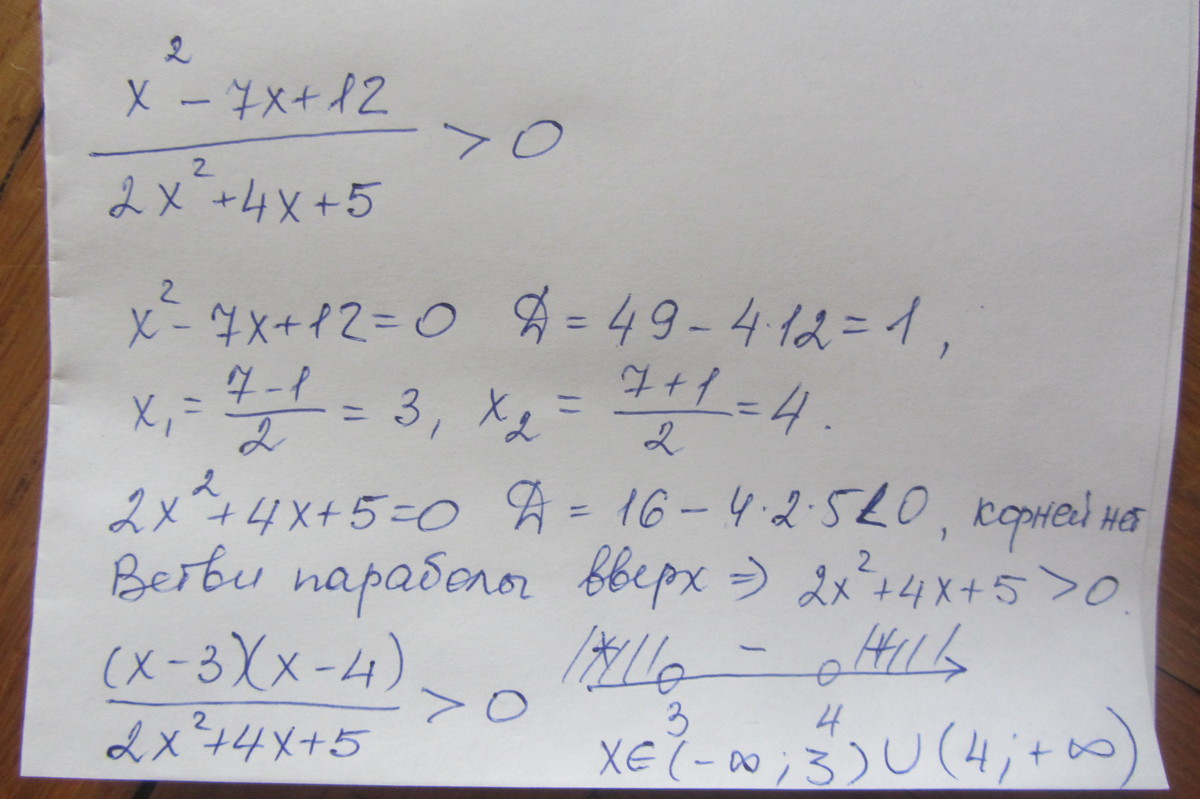 x² - 7x + 12
2x² + 4x + 5
> 0
x² - 7x + 12 = 0 Д = 49 - 4·12 = 1,
x₁ = (7-1)/2 = 3, x₂ = (7+1)/2 = 4.
2x² + 4x + 5 = 0 Д = 16 - 4·2·5 < 0, корней нет
Ветви параболы вверх ⇒ 2x² + 4x + 5 > 0.
(x-3)(x-4)
2x² + 4x + 5
> 0
+ - +
3 4
x∈(-∞; 3)∪(4; +∞)